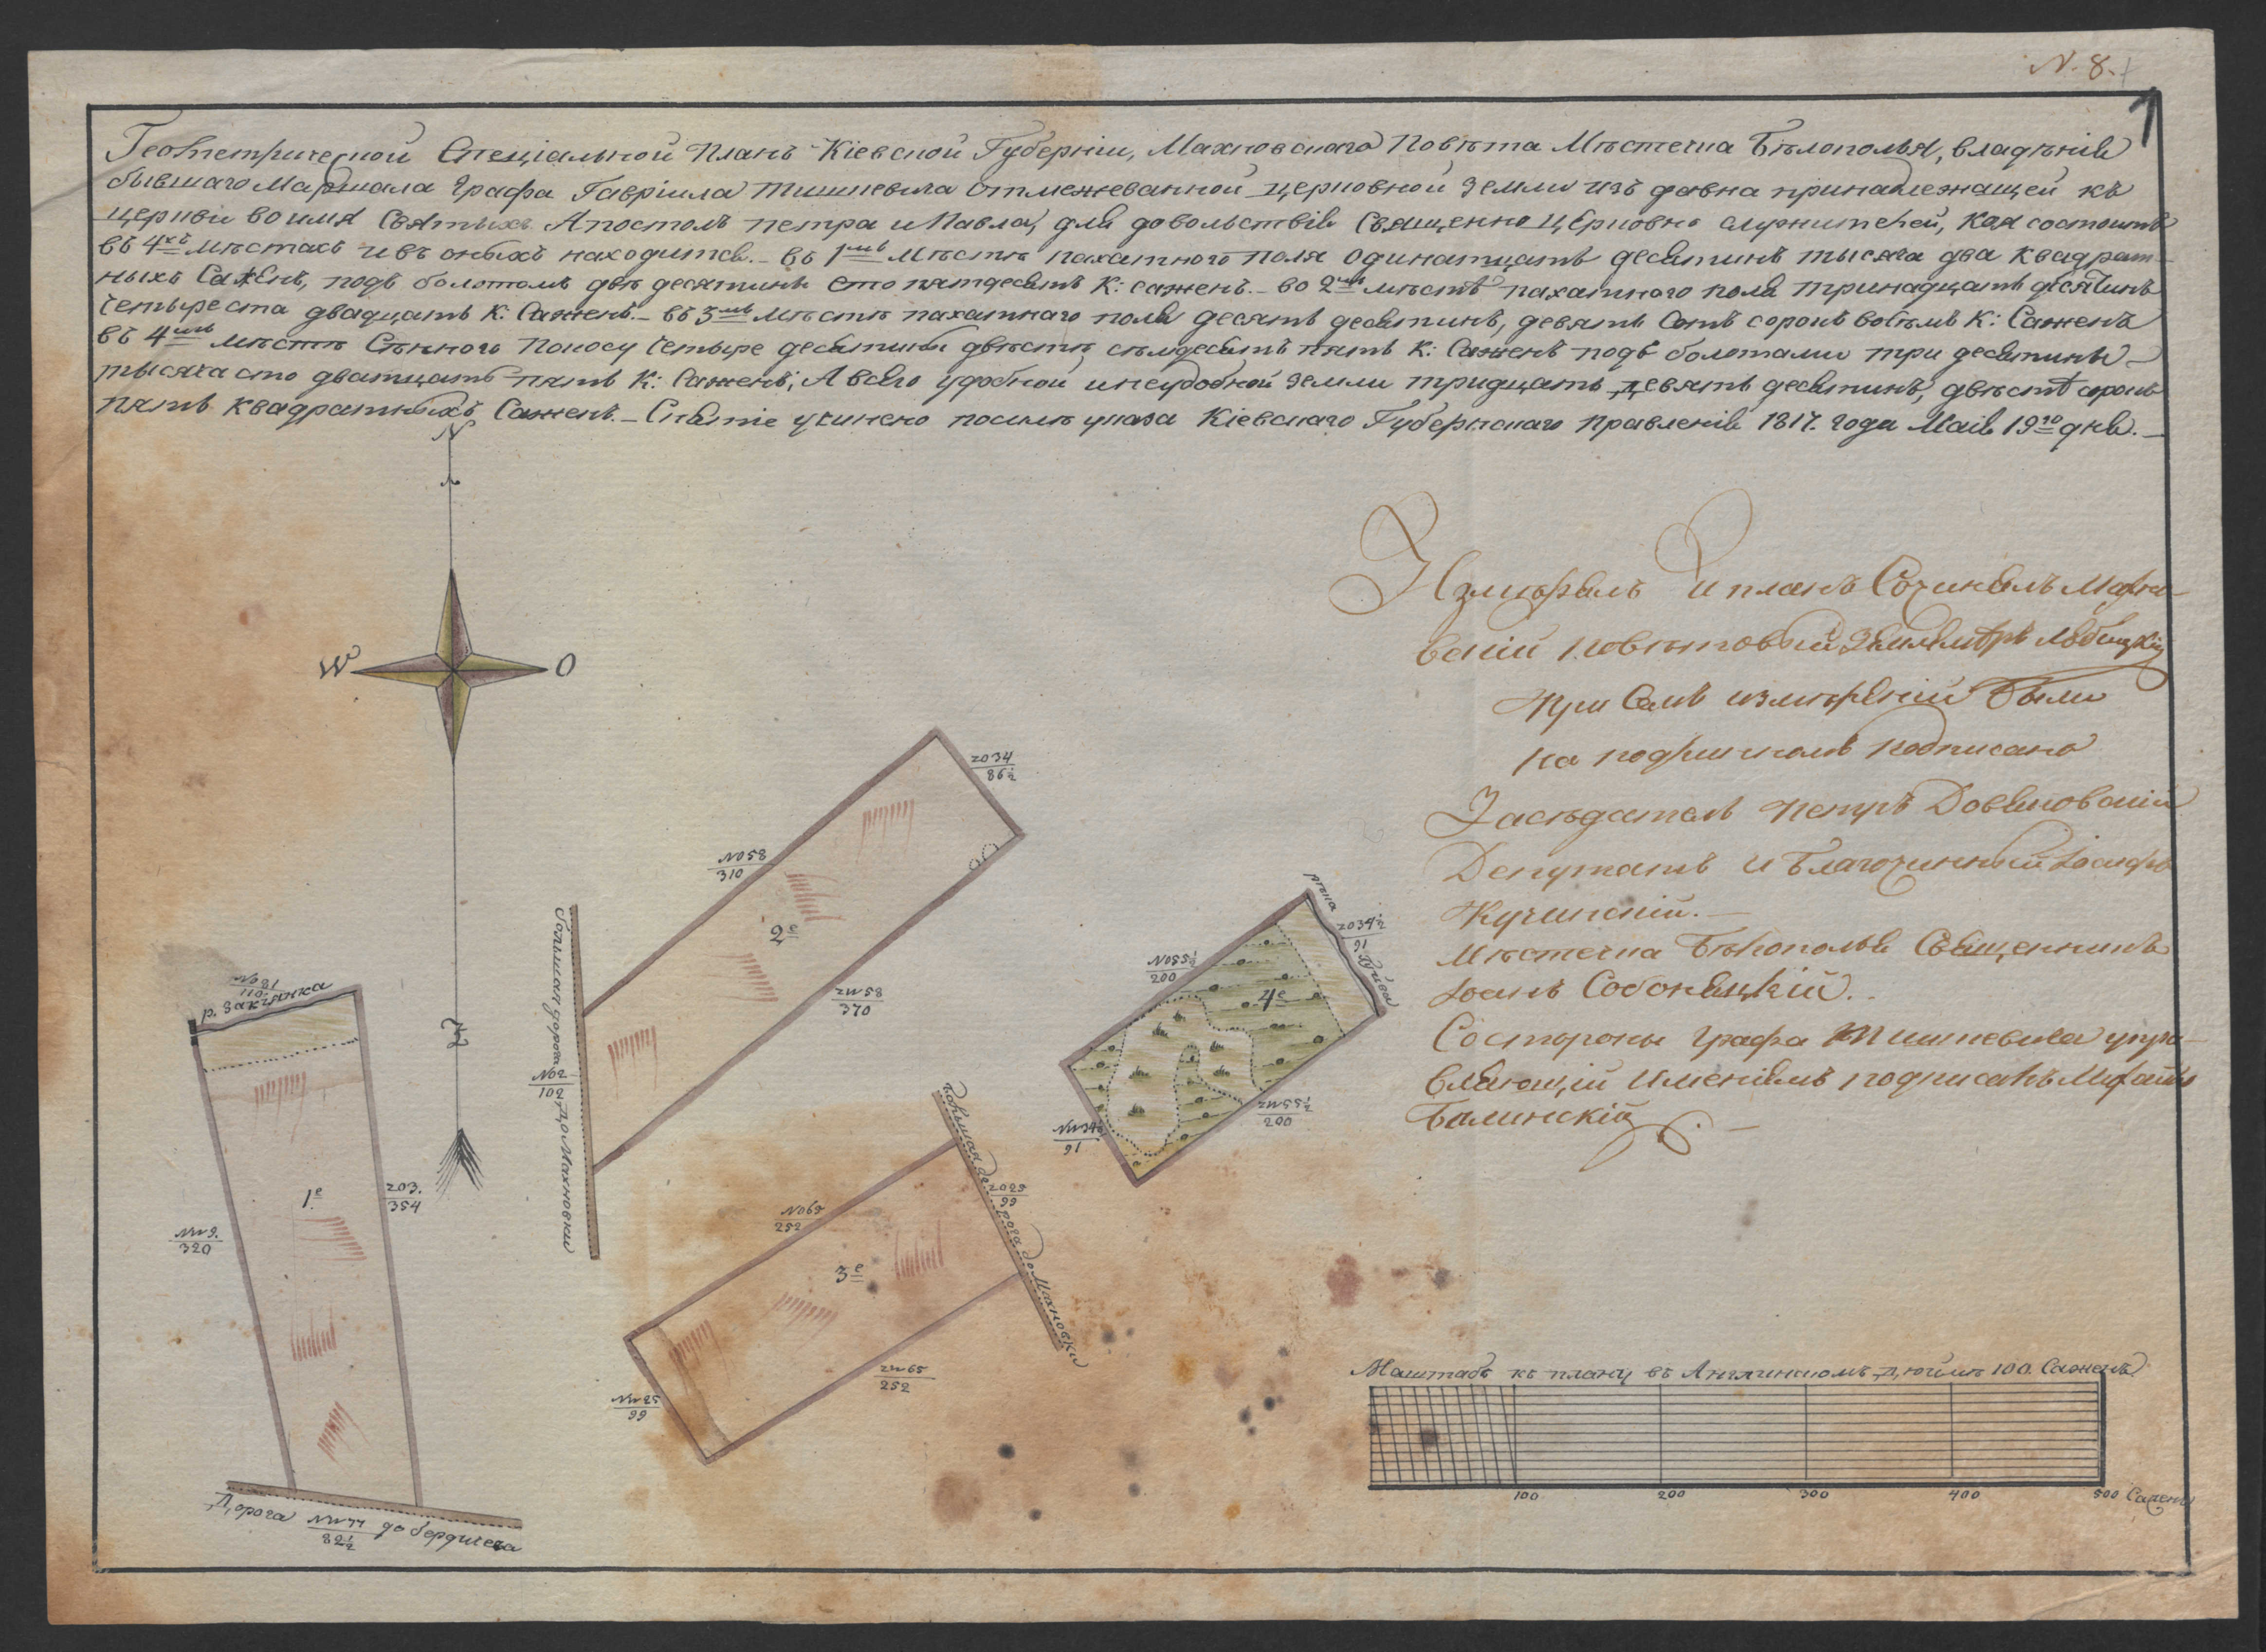 N. 8.
Геометрической Специальной Планъ Кіевской Губерніи, Махновскаго Повѣта Мѣстечка Бѣлополья, владѣнія
бывшаго Маршала Графа Гавріила Тишкевича Отмежеванной церковной Земли изъ давна принадлежащей къ
церкви во имя Святыхъ Апостолъ петра и Павла, для довольствія Священно церковно служителей, Кая состоитъ
въ 4хъ мѣстахъ и въ оныхъ находится.- въ 1мъ Мѣстѣ пахатного поля Одинатцать десятинъ тысяча два квадрат-
ныхъ Саженъ, подъ болотомъ двѣ десятины сто пятдесятъ К: саженъ.- во 2мъ мѣстѣ пахатного поля тринадцать десятинъ
четыреста двадцать К: Саженъ.- въ 3мъ мѣстѣ пахатнаго поля десять десятинъ, девять Сотъ сорокъ восѣмъ К: Саженъ
въ 4мъ мѣстѣ Сѣнного покосу четыре десятины двѣстѣ сѣмдесятъ пять К: Саженъ подъ болотами три десятины
тысяча сто дватцать пять К: Саженъ; А всего удобной и неудобной Земли тридцать девять десятинъ, двѣстѣ сорокъ
пять квадратныхъ Саженъ.- Снятіе учинено посилѣ указа Кіевскаго Губернскаго правленія 1817. года Маія 19го дня.-
N
W O
Z
Измѣралъ и планъ Сочинялъ Махно-
вскій повѣтовый Землемѣръ
При Семъ измѣреніи Были
на подлинномъ подписано
Засѣдатель Петръ
Депутатъ и Благочинный Іосифъ
Кучинскій.-
Мѣстечка Бѣлополья Священникъ
Іоанъ
Состороны Графа Тишкевича упра-
вляющій имѣніемъ подписалъ
Балинскій
ZO34
86½
NO58
310
2е
ZW58
370
Большая дорога до Махновки
NO2
102
рѣчка Гуйва
ZO34½
91
NO55½
200
4е
ZW55½
200
91
NO81
110
р. Закзянка
1е
ZO3.
354
NW9.
320
Дорога до бердичева
NW77
82½
Большая дорога до Махновки
ZO25
99
NO65
252
3е
ZW65
252
NW25
99
Маштабъ къ плану въ Англинскомъ дюймѣ 100. Саженъ
100 200 300 400 500 Сажень